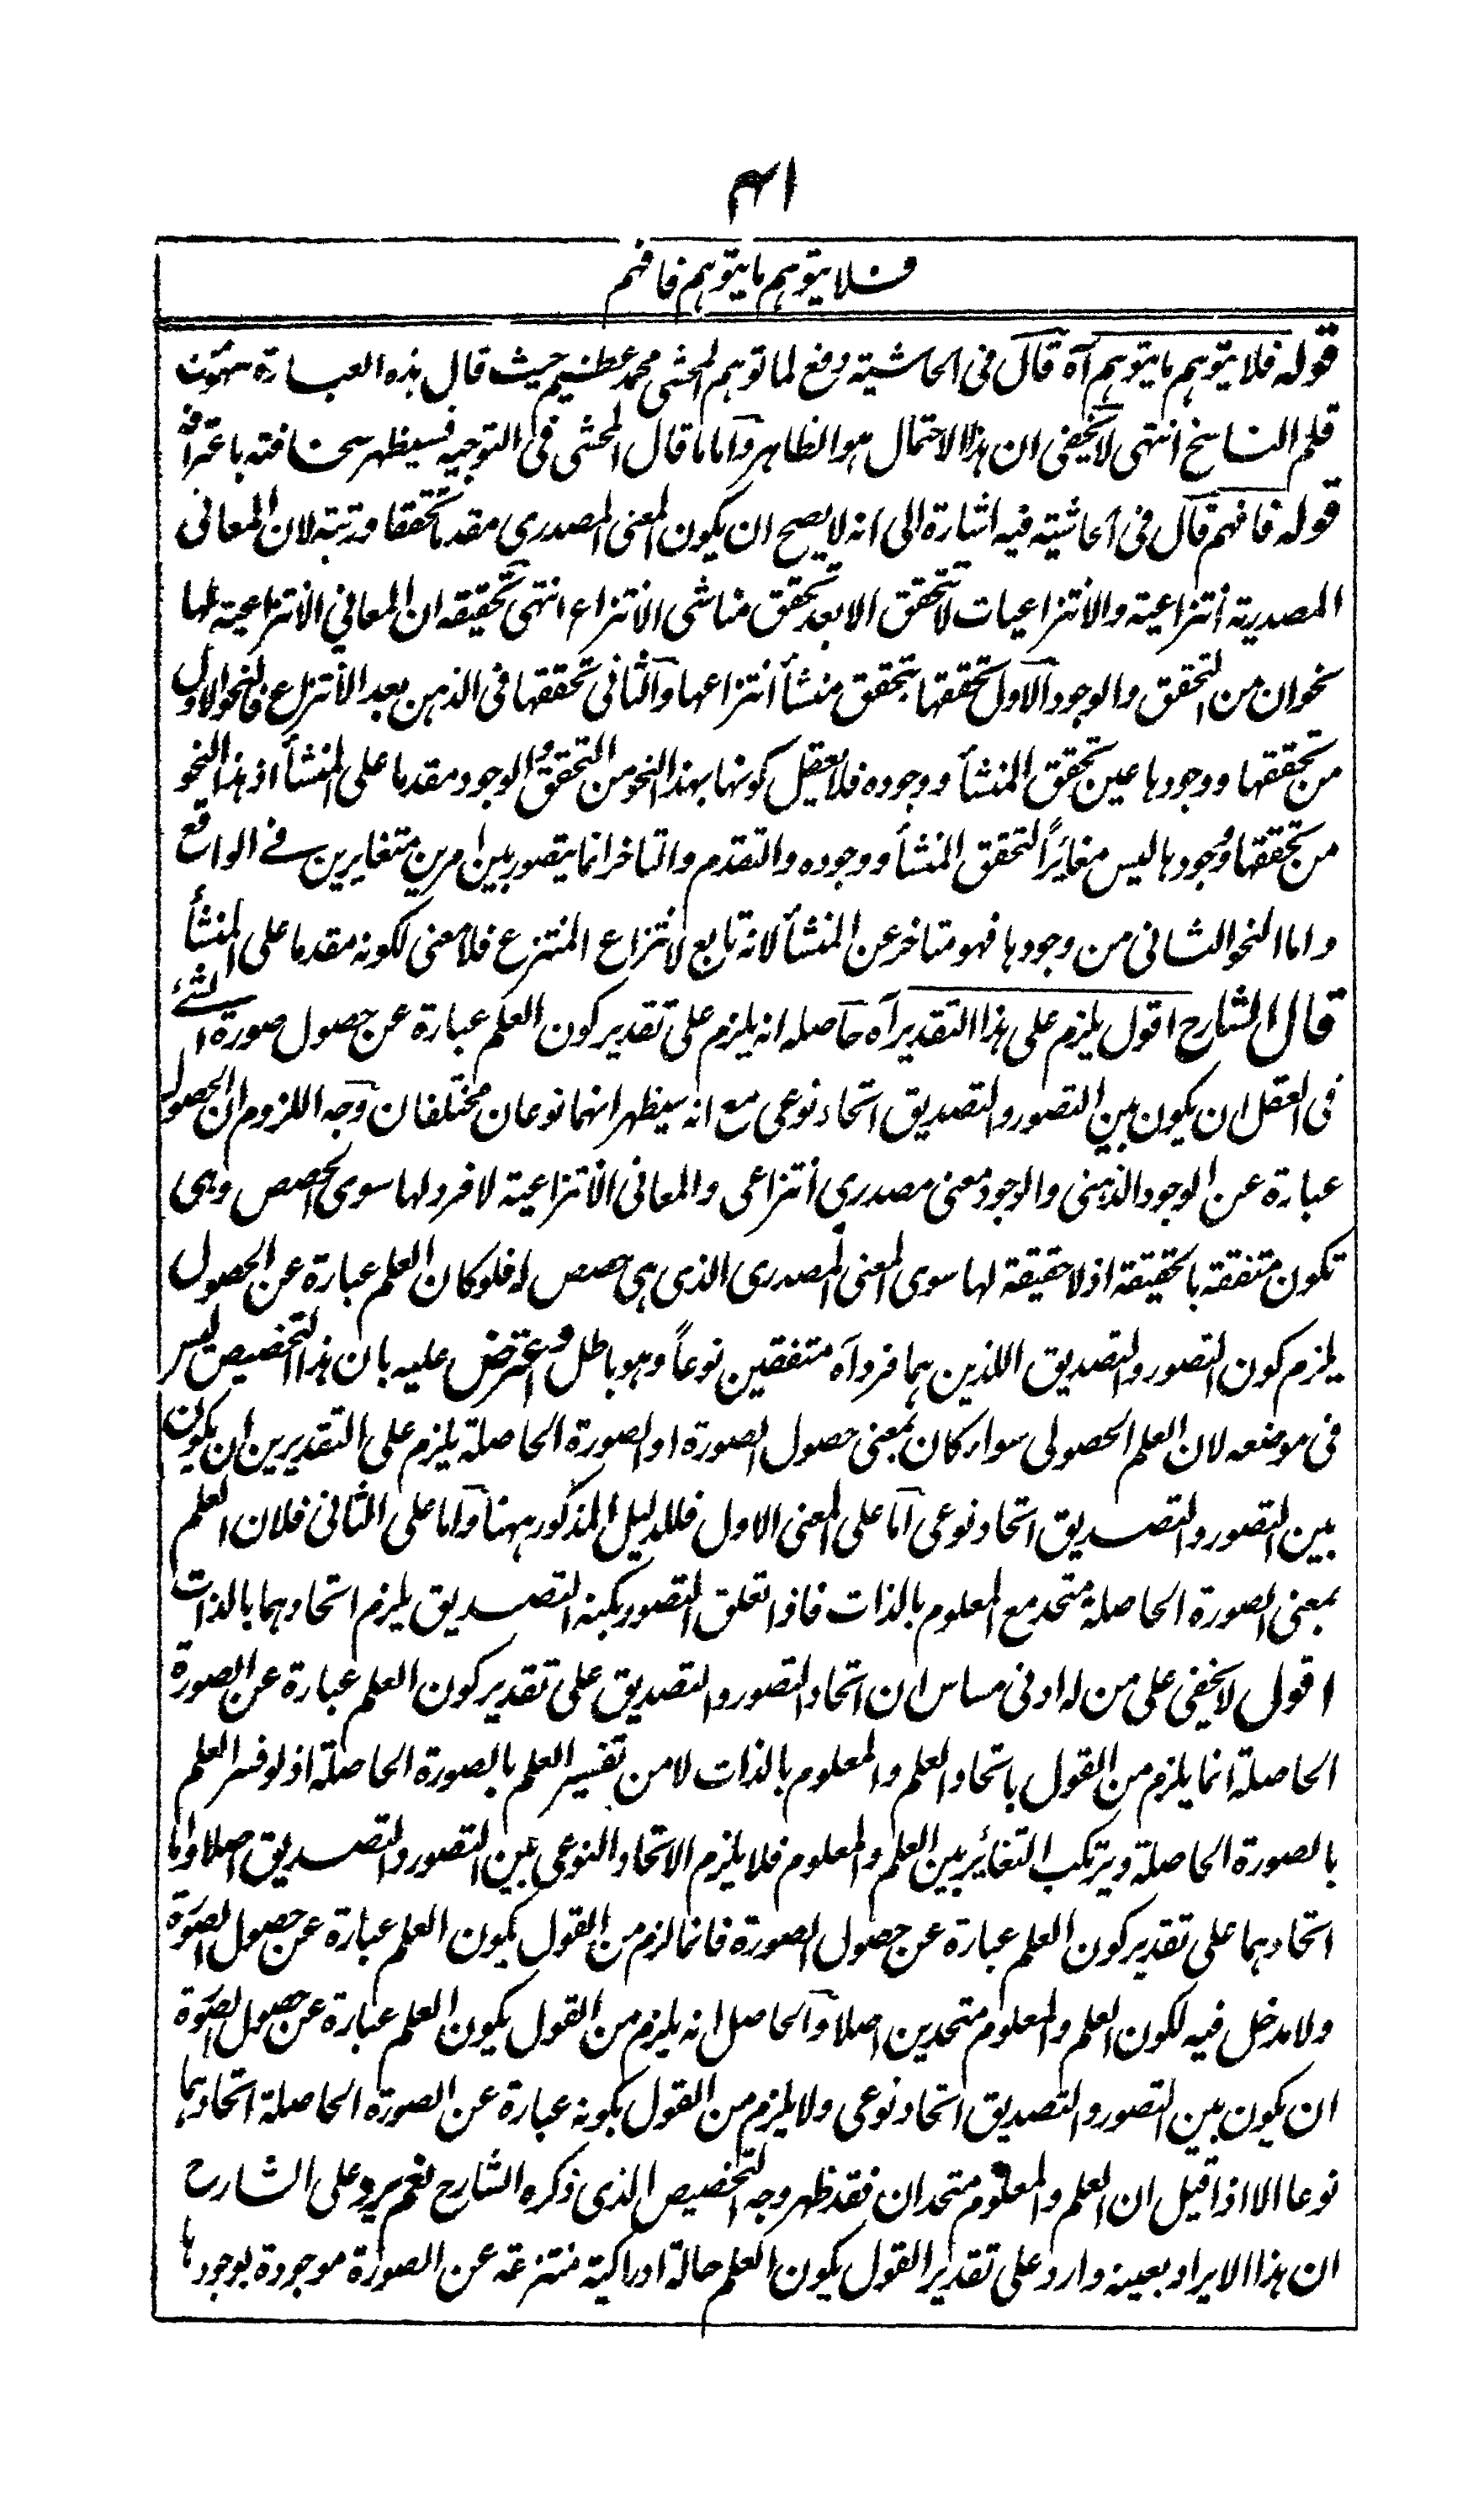 ۴۱
فلا يتوهم ما يتوهم فافهم
قوله فلا يتوهم ما يتوهم آه قال فى الحاشية دفع لما توهم المحشى محمد عظيم حيث قال هذه العبارة سهو من
قلم الناسخ انتهى لا يخفى ان هذا الاحتمال هو الظاهر واما ما قال المحشى فى التوجيه فسيظهر سخافته باعترافه
قوله فافهم قال فى الحاشية فيه اشارة الى انه لا يصح ان يكون المعنى المصدرى مقدما تحققا ورتبة لان المعانى
المصدرية انتزاعية والانتزاعيات لا تتحقق الا بعد تحقق مناشى الانتزاع انتهى تحقيقه ان المعاني الانتزاعية لها
نحوان من التحقق والوجود الاول تحققها بتحقق منشأ انتزاعها والثانى تحققها فى الذهن بعد الانتزاع فالنحو الاول
من تحققها ووجودها عين تحقق المنشأ ووجوده فلا يعقل كونها بهذا النحو من التحقق والوجود مقدما على المنشأ اذ هذا النحو
من تحققها ووجودها ليس مغايرًا لتحقق المنشأ ووجوده والتقدم والتاخر انما يتصور بين امرين متغايرين فے الواقع
واما النحو الثانى من وجودها فهو متاخر عن المنشأ لانه تابع لانتزاع المنتزع فلا معنى لكونه مقدما على المنشأ
قال الشارح اقول يلزم على هذا التقدير آه حاصله انه يلزم على تقدير كون العلم عبارة عن حصول صورة الشئ
فى العقل ان يكون بين التصور والتصديق اتحاد نوعى مع انه سيظهر انهما نوعان مختلفان وجه اللزوم ان الحصول
عبارة عن الوجود الذهنى والوجود معنى مصدرى انتزاعى والمعانى الانتزاعية لا فرد لها سوى الحصص وهى
تكون متفقة بالحقيقة اذ لا حقيقة لها سوى المعنى المصدرى الذى هى حصص له فلو كان العلم عبارة عن الحصول
يلزم كون التصور والتصديق اللذين هما فرداه متفقين نوعاً وهو باطل واعترض عليه بان هذا التخصيص ليس
فى موضعه لان العلم الحصولى سواء كان بمعنى حصول الصورة او الصورة الحاصلة يلزم على التقديرين ان يكون
بين التصور والتصديق اتحاد نوعى اما على المعنى الاول فللدليل المذكور ههنا واما على الثانى فلان العلم
بمعنى الصورة الحاصلة متحد مع المعلوم بالذات فاذا تعلق التصور بكنه التصديق يلزم اتحادهما بالذات
اقول لا يخفى على من له ادنى مساس ان اتحاد التصور والتصديق على تقدير كون العلم عبارة عن الصورة
الحاصلة انما يلزم من القول باتحاد العلم والمعلوم بالذات لا من تفسير العلم بالصورة الحاصلة اذ لو فسر العلم
بالصورة الحاصلة ويرتكب التغائر بين العلم والمعلوم فلا يلزم الاتحاد النوعى بين التصور والتصديق اصلا واما
اتحادهما على تقدير كون العلم عبارة عن حصول الصورة فانما لزم من القول بكون العلم عبارة عن حصول الصورة
ولا مدخل فيه لكون العلم والمعلوم متحدين اصلا والحاصل انه يلزم من القول بكون العلم عبارة عن حصول الصورة
ان يكون بين التصور والتصديق اتحاد نوعى ولا يلزم من القول بكونه عبارة عن الصورة الحاصلة اتحادهما
نوعا الا اذا قيل ان العلم والمعلوم متحدان فقد ظهر وجه التخصيص الذى ذكره الشارح نعم يرد على الشارح
ان هذا الايراد بعينه وارد على تقدير القول بكون العلم حالة ادراكية منتزعة عن الصورة موجودة بوجودها